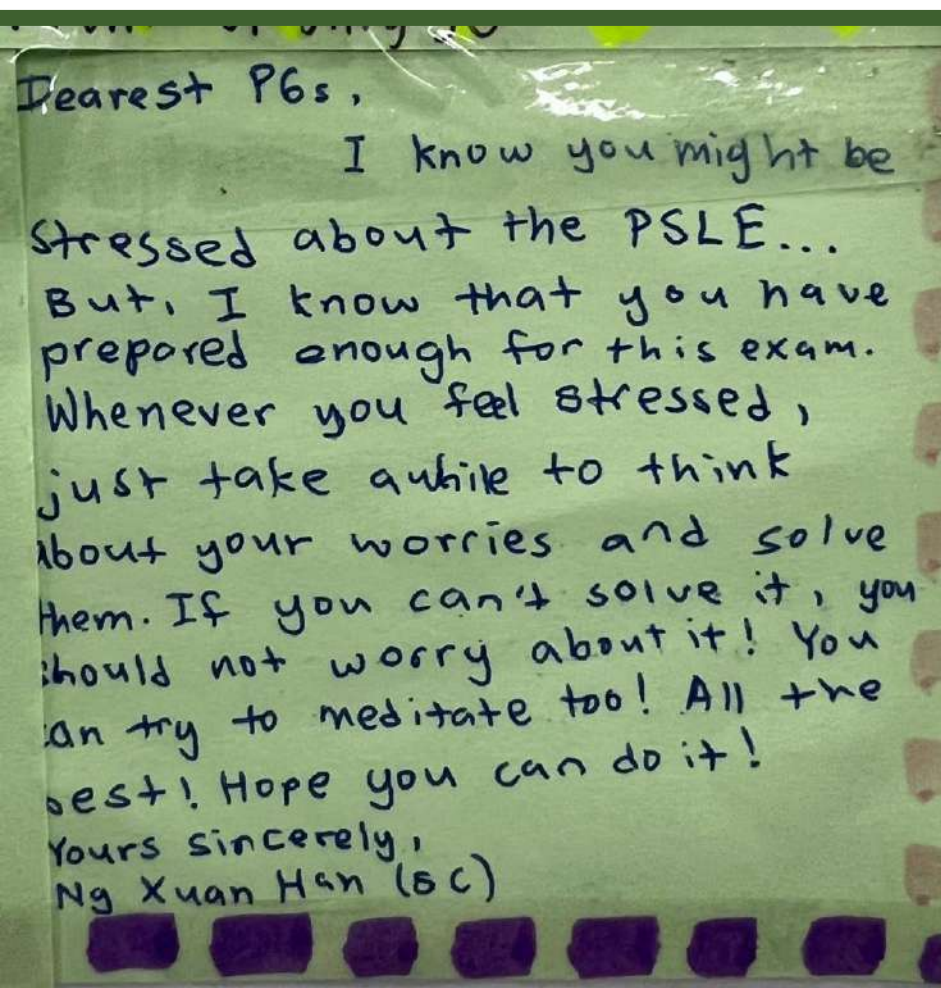 Dearest P6s,
I know you might be
stressed about the PSLE...
But, I know that you have
prepared enough for this exam.
Whenever you feel stressed,
just take awhile to think
about your worries and solve
them. If you can't solve it, you
should not worry about it! You
can try to meditate too! All the
best! Hope you can do it!
Yours sincerely,
Ng Xuan Han (5C)